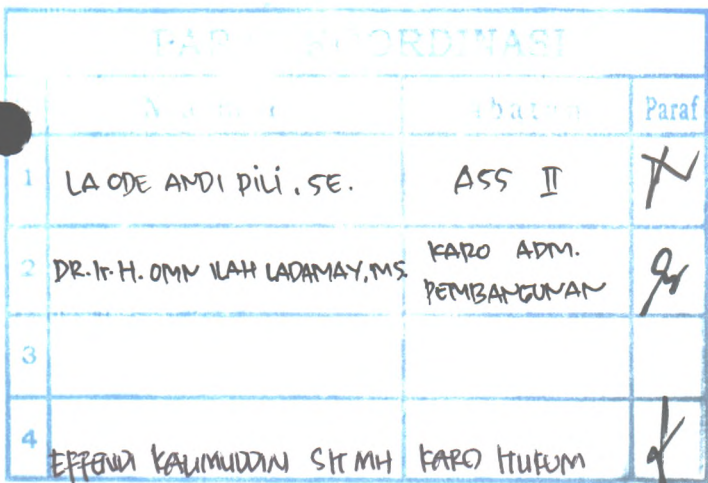 PARAF KOORDINASI
Nama Jabatan Paraf
1 LA ODE ANDI PILI, SE. ASS II
2 DR. Ir. H. OMN ILAH LADAMAY, MS. KARO ADM. PEMBANGUNAN
3
4 EFFENDI KALIMUDDIN SH MH KARO HUKUM